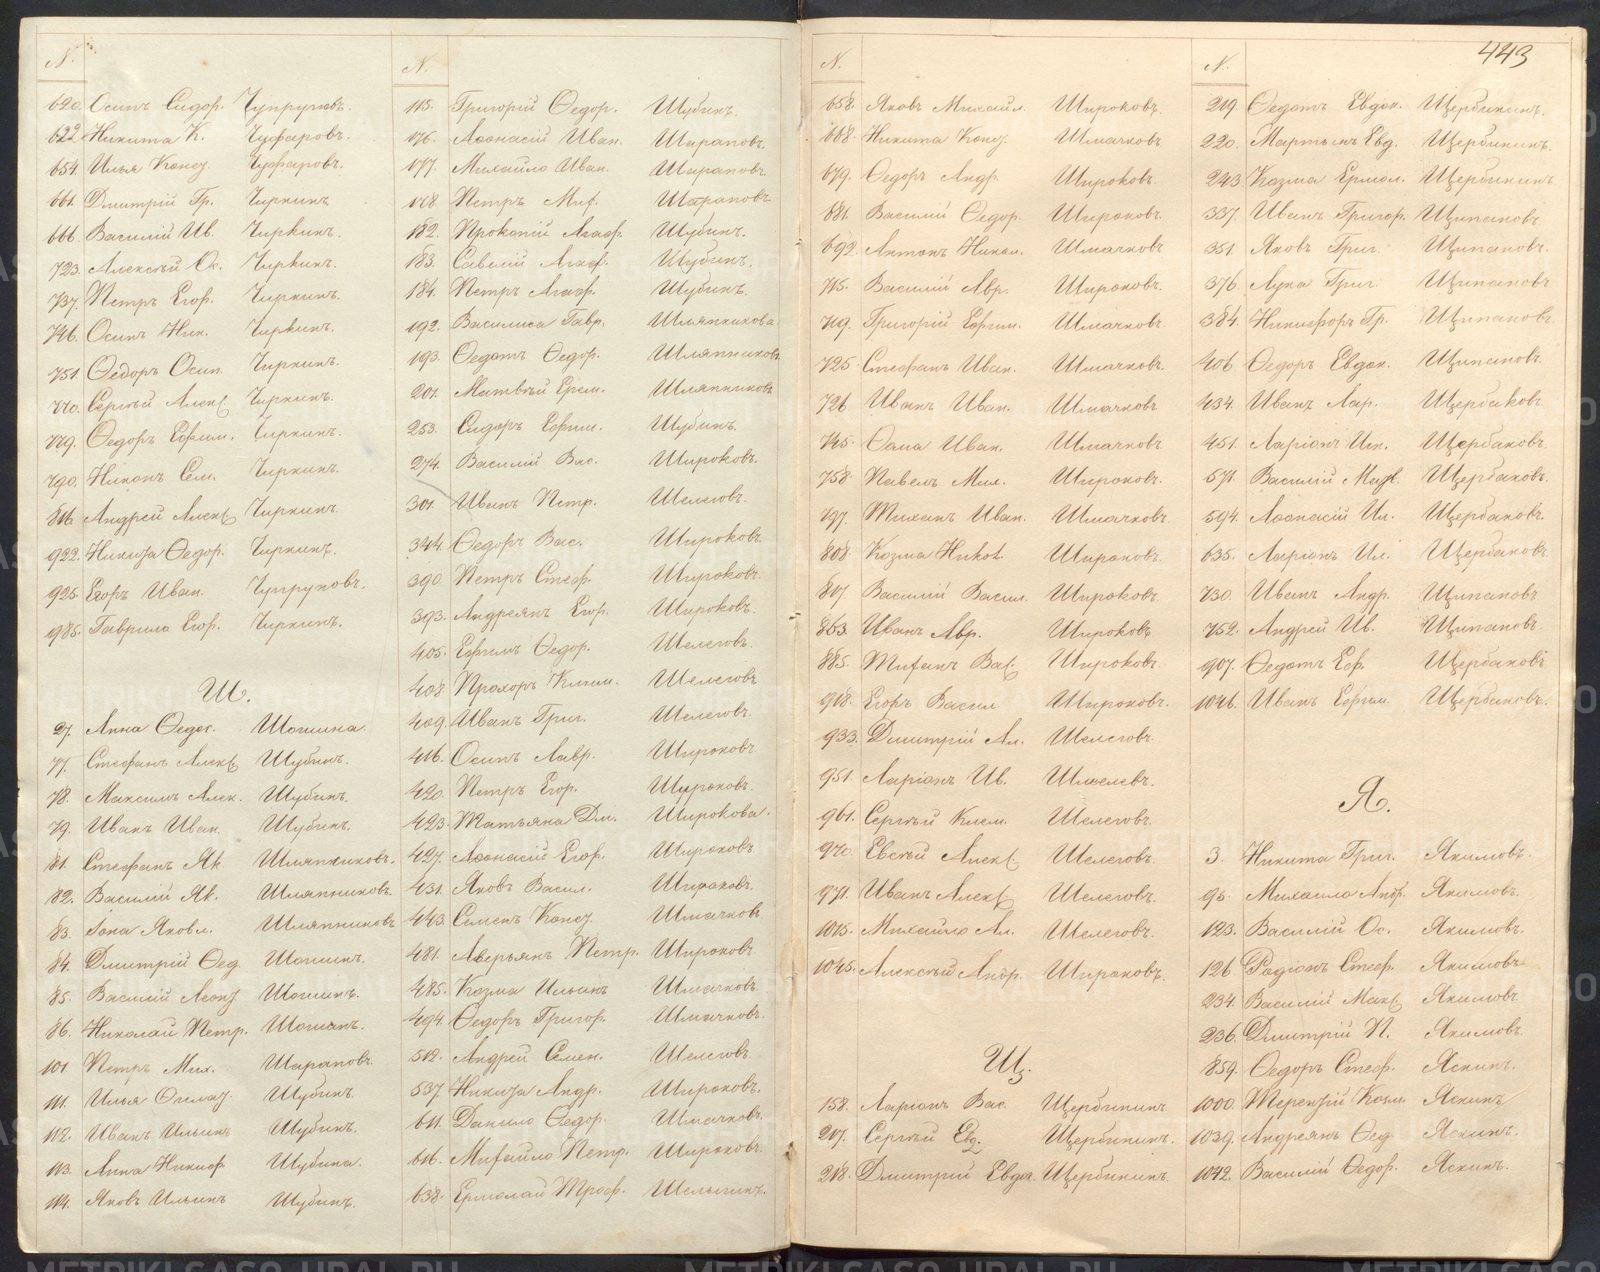 N.
620. Осипъ Сидор. Чупруновъ.
622. Никита К. Чуфаровъ.
654. Илья Конс. Чуфаровъ.
661. Дмитрій Гр. Чиркинъ
666. Василій Ив. Чиркинъ.
723. Алексѣй Ос. Чиркинъ.
737. Петръ Егор. Чиркинъ.
746. Осипъ Ник. Чиркинъ.
751. Ѳедоръ Осип. Чиркинъ.
770. Сергѣй Алекс. Чиркинъ.
779. Ѳедоръ Ефим. Чиркинъ.
790. Никонъ Сем. Чиркинъ.
816. Андрей Алекс. Чиркинъ.
922. Никита Ѳедор. Чиркинъ.
925. Егоръ Иван. Чупруновъ.
985. Гаврило Егор. Чиркинъ.
Ш.
27. Анна Ѳедос. Шошина.
77. Стефанъ Алекс. Шубинъ.
78. Максимъ Алек. Шубинъ.
79. Иванъ Иван. Шубинъ.
81. Стефанъ Як. Шляпниковъ.
82. Василій Як. Шляпниковъ.
83. Іона Яковл. Шляпниковъ
84. Дмитрій Ѳед. Шошинъ.
85. Василій Леонт. Шошинъ.
86. Николай Петр. Шошинъ.
101. Петръ Мих. Шараповъ.
111. Илья Шубинъ.
112. Иванъ Ильинъ Шубинъ.
113. Анна Никиф. Шубина.
114. Яковъ Ильинъ Шубинъ.
N.
115. Григорій Ѳедор. Шубинъ.
176. Аѳанасій Иван. Шараповъ.
177. Михайло Иван. Шараповъ.
178. Петръ Мих. Шараповъ.
182. Прокопій Агаф. Шубинъ.
183. Савелій Агаф. Шубинъ.
184. Петръ Агаф. Шубинъ.
192. Василиса Гавр. Шляпникова
193. Ѳедотъ Ѳедор. Шляпниковъ
201. Матвѣй Ерем. Шляпниковъ
253. Сидоръ Ефим. Шубинъ.
274. Василій Вас. Широковъ.
301. Иванъ Петр. Шелеговъ.
344. Ѳедоръ Вас. Широковъ.
390. Петръ Стеф. Широковъ.
393. Андреянъ Егор. Широковъ.
405. Ефимъ Ѳедор. Шелеговъ.
408. Прохоръ Клим. Шелеговъ
409. Иванъ Григ. Шелеговъ.
416. Осипъ Лавр. Широковъ
420. Петръ Егор. Широковъ.
423. Татьяна Дм. Широкова.
427. Аѳанасій Егор. Широковъ.
431. Яковъ Васил. Широковъ.
443. Семенъ Конс. Шмачковъ
481. Аверьянъ Петр. Широковъ
485. Козма Ильинъ Шмачковъ
494. Ѳедоръ Григор. Шмачковъ.
512. Андрей Семен. Шелеговъ
537. Никита Андр. Широковъ.
611. Данило Ѳедор. Шмачковъ.
616. Михайло Петр. Широковъ.
638. Ермолай Троф. Шелыгинъ.
N.
658. Яковъ Михайл. Широковъ.
668. Никита Конс. Шмачковъ
679. Ѳедоръ Андр. Широковъ.
681. Василій Ѳедор. Широковъ.
692. Антонъ Никол. Шмачковъ
715. Василій Авр. Широковъ.
719. Григорій Ефим. Шмачковъ.
725. Стефанъ Иван. Шмачковъ.
726 Иванъ Иван. Шмачковъ
745. Ѳома Иван. Шмачковъ
758. Павелъ Мих. Широковъ.
797. Тихонъ Иван. Шмачковъ.
808. Козма Никол. Широковъ.
817. Василій Васил. Широковъ.
863. Иванъ Авр. Широковъ
885. Вас. Широковъ.
908. Егоръ Васил Широковъ.
933. Дмитрій Ал. Шелеговъ.
951. Ларіонъ Ив.
961. Сергѣй Клем. Шелеговъ.
970. Евсѣй Алекс. Шелеговъ.
971. Иванъ Алекс. Шелеговъ.
1015. Михайло Ал. Шелеговъ.
1045. Алексѣй Андр. Широковъ.
Щ.
158. Ларіонъ Вас. Щербининъ
217. Сергѣй Щербининъ.
218. Дмитрій Евдок. Щербининъ.
N.
443
219 Ѳедотъ Евдок. Щербининъ.
220. Мартынъ Евд. Щербининъ.
243 Козма Ермол. Щербининъ
337. Иванъ Григор. Щипановъ
351. Яковъ Григ. Щипановъ.
376. Лука Григ. Щипановъ
384. Никифоръ Гр. Щипановъ.
406 Ѳедоръ Евдок. Щипановъ.
434. Иванъ Лар. Щербаковъ.
451. Ларіонъ Ил. Щербаковъ.
571. Василій Щербаковъ.
594. Аѳанасій Ил. Щербаковъ.
635. Ларіонъ Ил. Щербаковъ.
730. Иванъ Андр. Щипановъ
752. Андрей Ив. Щипановъ.
907. Ѳедотъ Еф. Щербаковъ
1046. Иванъ Ефим. Щербаковъ.
Я.
3. Никита Григ. Якимовъ.
95. Михайло Андр. Якимовъ.
123. Василій Ос. Якимовъ.
126 Родіонъ Стеф. Якимовъ
234. Василій Макс. Якимовъ
236. Дмитрій П. Якимовъ.
859. Ѳедоръ Стеф. Яскинъ.
1000. Терентій Козм. Яскинъ
1039. Андреянъ Ѳед. Яскинъ.
1072. Василій Ѳедор. Яскинъ.
METRIKI.GASO-URAL.RU
METRIKI.GASO-URAL.RU